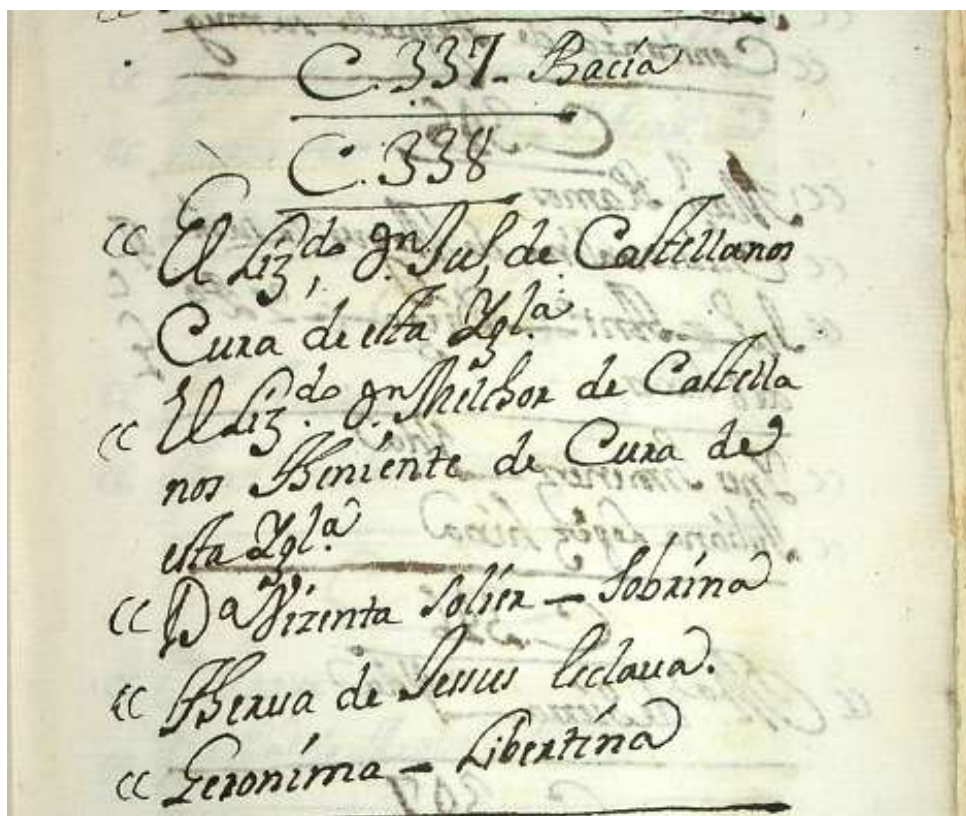 C. 337 - Bacía
C. 338
cc El Liz.do Dn Jul, de Castellanos
Cura de esta Ygl.a
cc El Liz.do Dn Melchor de Castella
nos Theniente de Cura de
esta Ygl.a
cc D.a Vizenta Solier - Sobrina
cc Theresa de Jesus Esclaua.
cc Geronima - Libertina